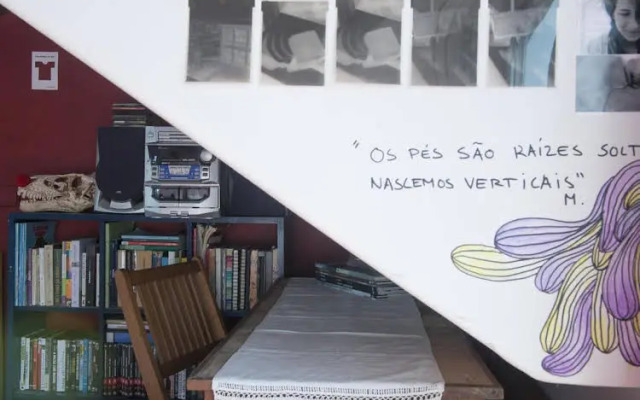 "OS PÉS SÃO RAÍZES SOLT
NASCEMOS VERTICAIS"
M.